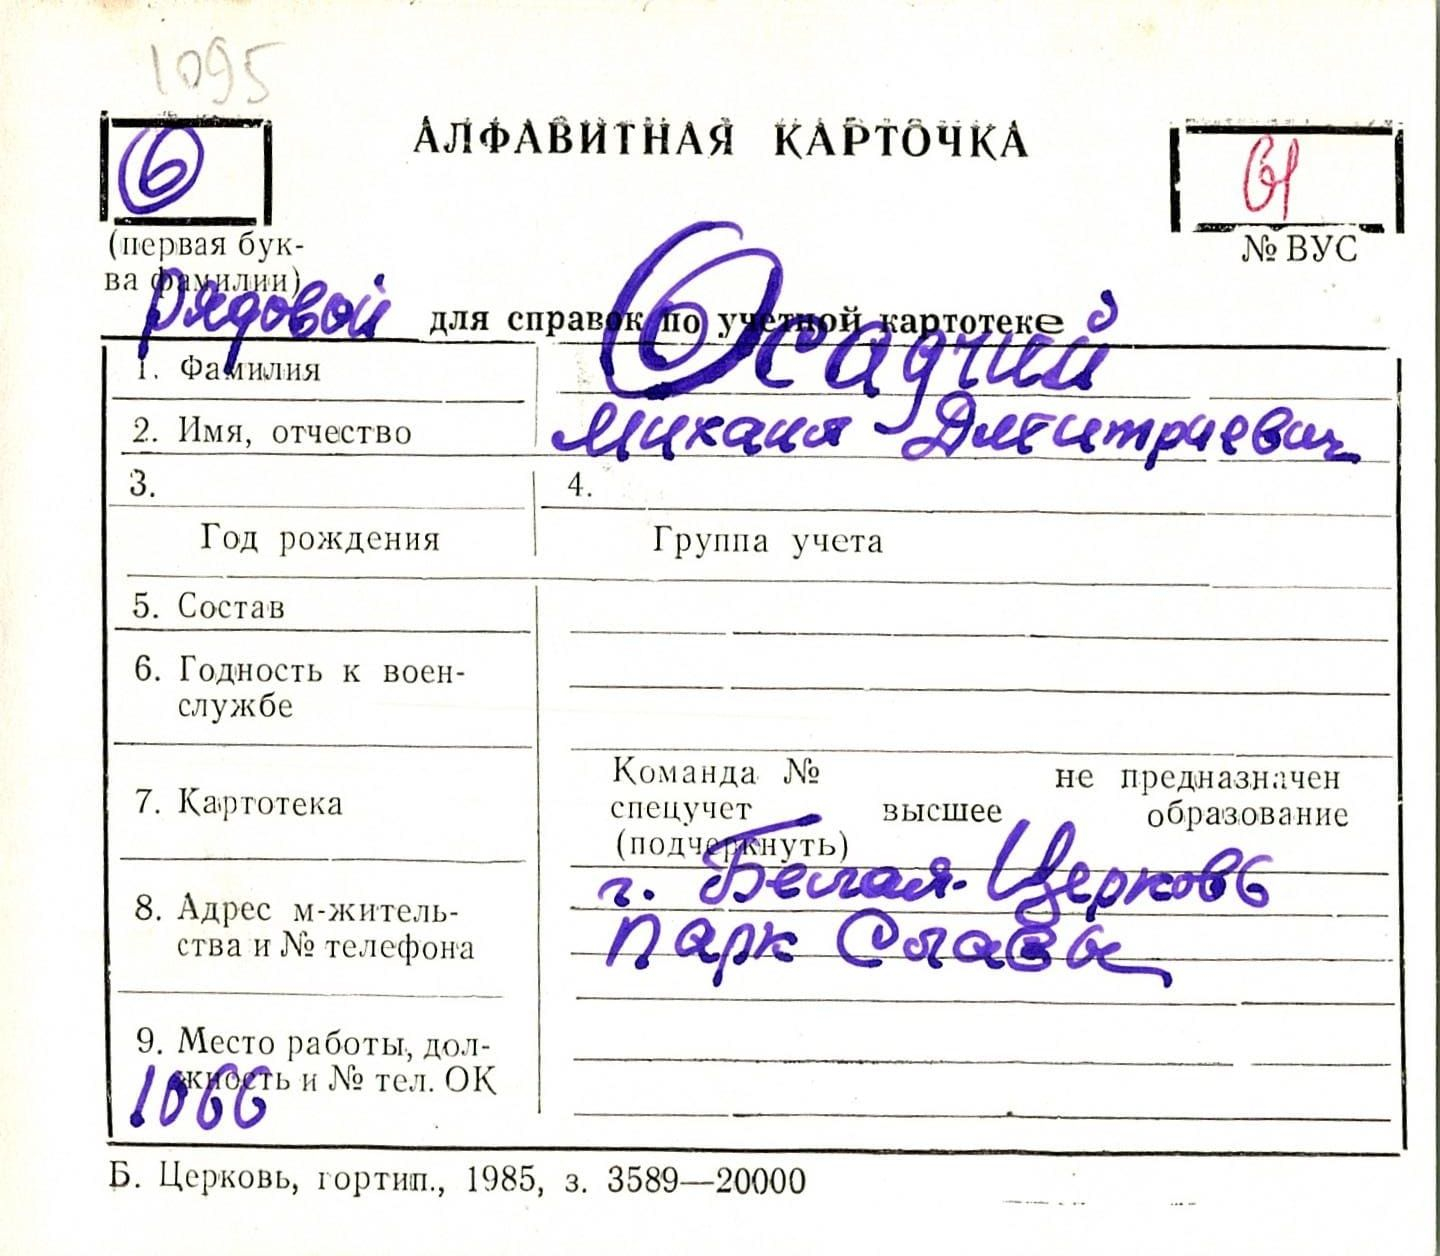 1095
6
АЛФАВИТНАЯ КАРТОЧКА
61
(первая бук-
ва фамилии)
№ ВУС
рядовой
для справок по учетной картотеке
1. Фамилия
Осадчий
2. Имя, отчество
Михаил Дмитриевич
3.
4.
Год рождения
Группа учета
5. Состав
6. Годность к воен-
службе
7. Картотека
Команда № не предназначен
спецучет высшее образование
(подчеркнуть)
8. Адрес м-житель-
ства и № телефона
г. Белая-Церковь
парк Славы
9. Место работы, дол-
жность и № тел. ОК
1066
Б. Церковь, гортип., 1985, з. 3589—20000